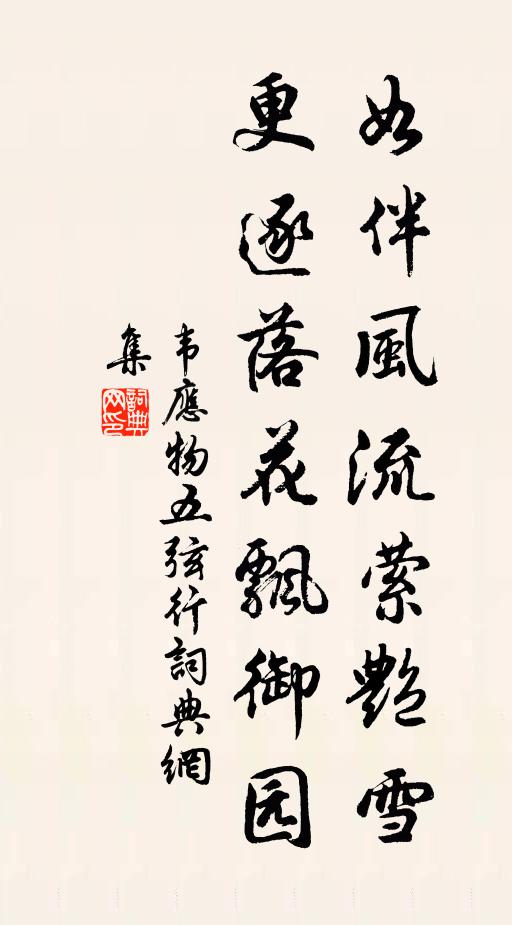 如伴風流縈艷雪
更逐落花飄御园
韦應物五弦行詞典網
集
詞典
网印